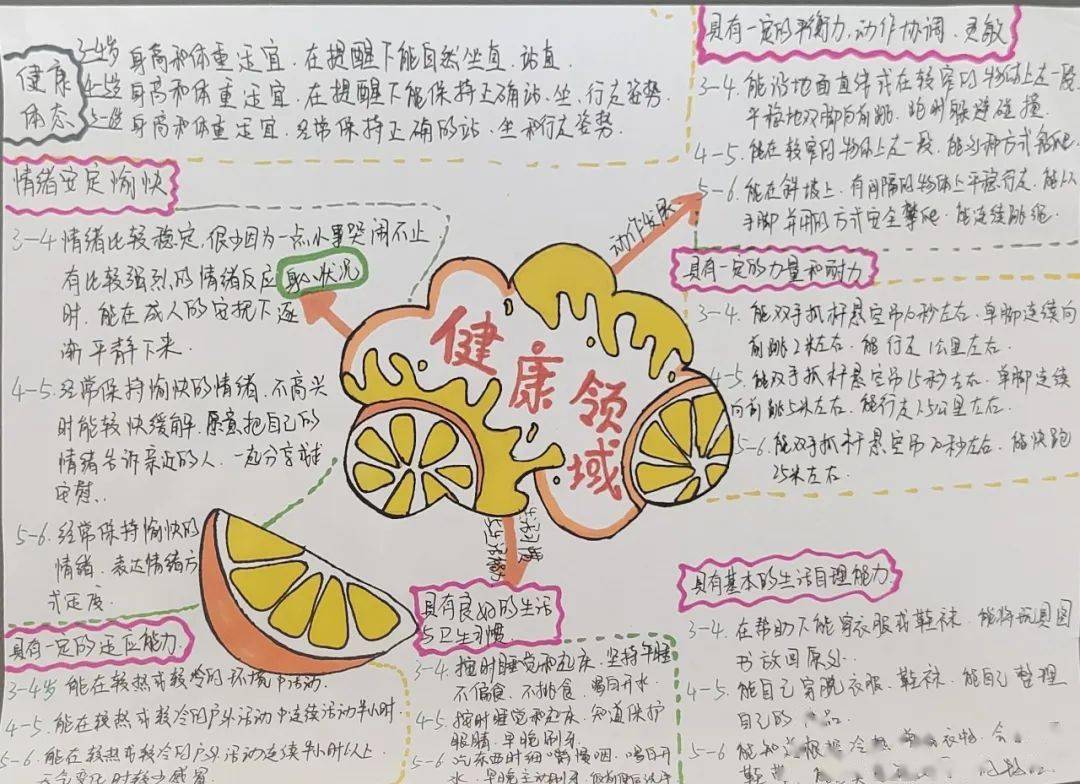 健康
体态
3-4岁 身高和体重适宜.在提醒下能自然坐直.站直
4-5岁 身高和体重适宜.在提醒下能保持正确站.坐.行走姿势.
5-6岁 身高和体重适宜.经常保持正确的站.坐和行走姿势.
情绪安定愉快
3-4 情绪比较稳定.很少因为一点小事哭闹不止
有比较强烈的情绪反应
时.能在成人的安抚下逐
渐平静下来.
4-5.经常保持愉快的情绪.不高兴
时能较快缓解.愿意把自己的
情绪告诉亲近的人.一起分享或
安慰.
5-6.经常保持愉快的
情绪.表达情绪方
式适度.
具有一定的适应能力.
3-4岁 能在较热或较冷的环境中活动.
4-5.能在较热或较冷的户外活动中连续活动半小时.
5-6.能在较热或较冷的户外活动连续半小时以上.
天气变化时较少感冒
身心状况
健康领域
动作发展
生活习惯
具有良好的生活
与卫生习惯.
3-4.按时睡觉和起床.坚持午睡
不偏食.不挑食.喝白开水.
4-5.按时睡觉和起床.知道保护
眼睛.早晚刷牙.
5-6 吃东西时细嚼慢咽.喝白开
水.早晚主动刷牙.
具有一定的平衡力,动作协调.灵敏
3-4.能沿地面直线或在较窄的物体上走一段
平稳地双脚向前跳.跑时躲避碰撞.
4-5.能在较窄的物体上走一段.能以多种方式钻爬.
5-6.能在斜坡上.有间隔的物体上平稳行走.能以
手脚并用的方式安全攀爬.能连续跳绳.
具有一定的力量和耐力
3-4.能双手抓杆悬空吊10秒左右.单脚连续向
前跳2米左右.能行走1公里左右.
4-5.能双手抓杆悬空吊15秒左右.单脚连续
向前跳5米左右.能行走1.5公里左右.
5-6.能双手抓杆悬空吊20秒左右.能快跑
25米左右.
具有基本的生活自理能力
3-4.在帮助下能穿衣服或鞋袜.能将玩具图
书放回原处.
4-5.能自己穿脱衣服.鞋袜.能自己整理
自己的 品.
5-6 能知道根据冷热 衣物.会